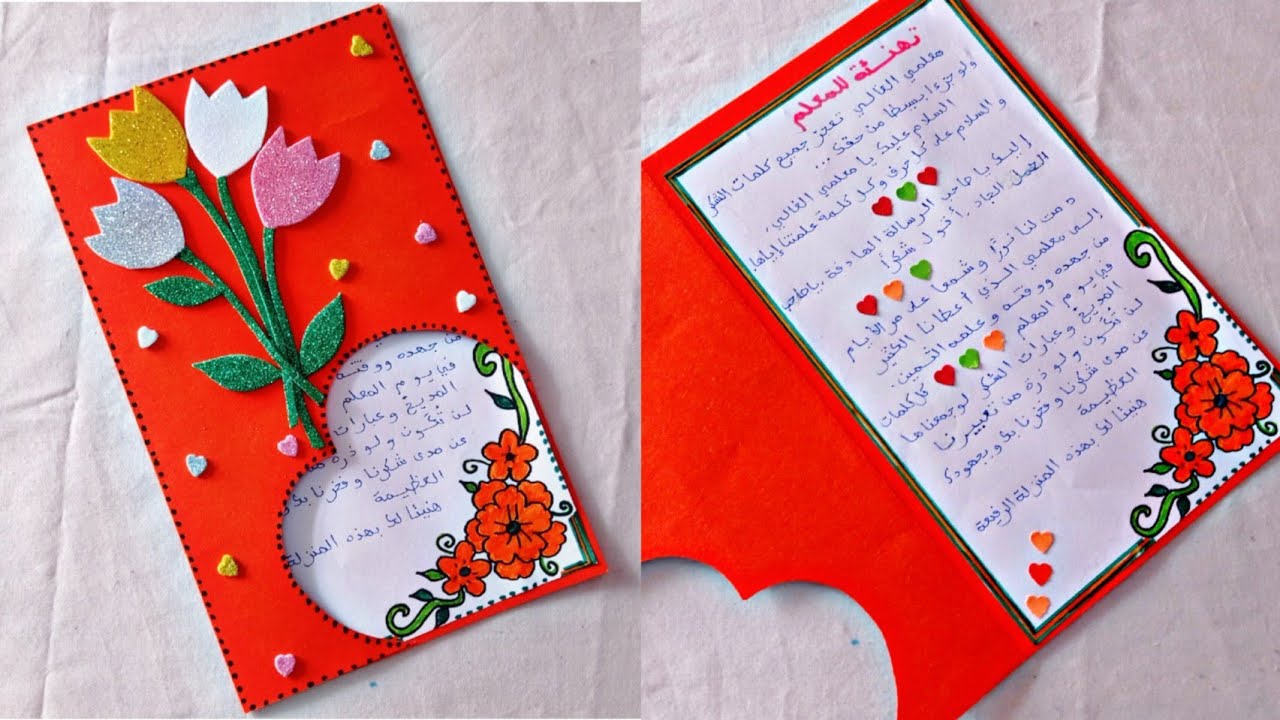 من جهده ووقته
في يوم المعلم
المديح وعبارات
لن تكون ولو ذرة
عن مدى شكرنا وفخرنا بك
العظيمة
هنيئا لك بهذه المنزلة
تهنئة للمعلم
معلمي الغالي تعجز جميع كلمات الشكر
ولو جزءا بسيطا من حقك ...
السلام عليك يا معلمي الغالي،
و السلام على كل حرف وكل كلمة علمتنا إياها
إليك يا صاحب الرسالة الهادفة، يا صاحب
العمل الجاد، أقول شكرا
دمت لنا نورا و شمعا على مر الأيام
إلى معلمي الذي أعطانا الكثير
من جهده ووقته و علمه الثمين
في يوم المعلم كل كلمات
المديح وعبارات الشكر لو جمعناها
لن تكون ولو ذرة من تعبيرنا
عن مدى شكرنا وفخرنا بك وبجهودك
العظيمة
هنيئا لك بهذه المنزلة الرفيعة